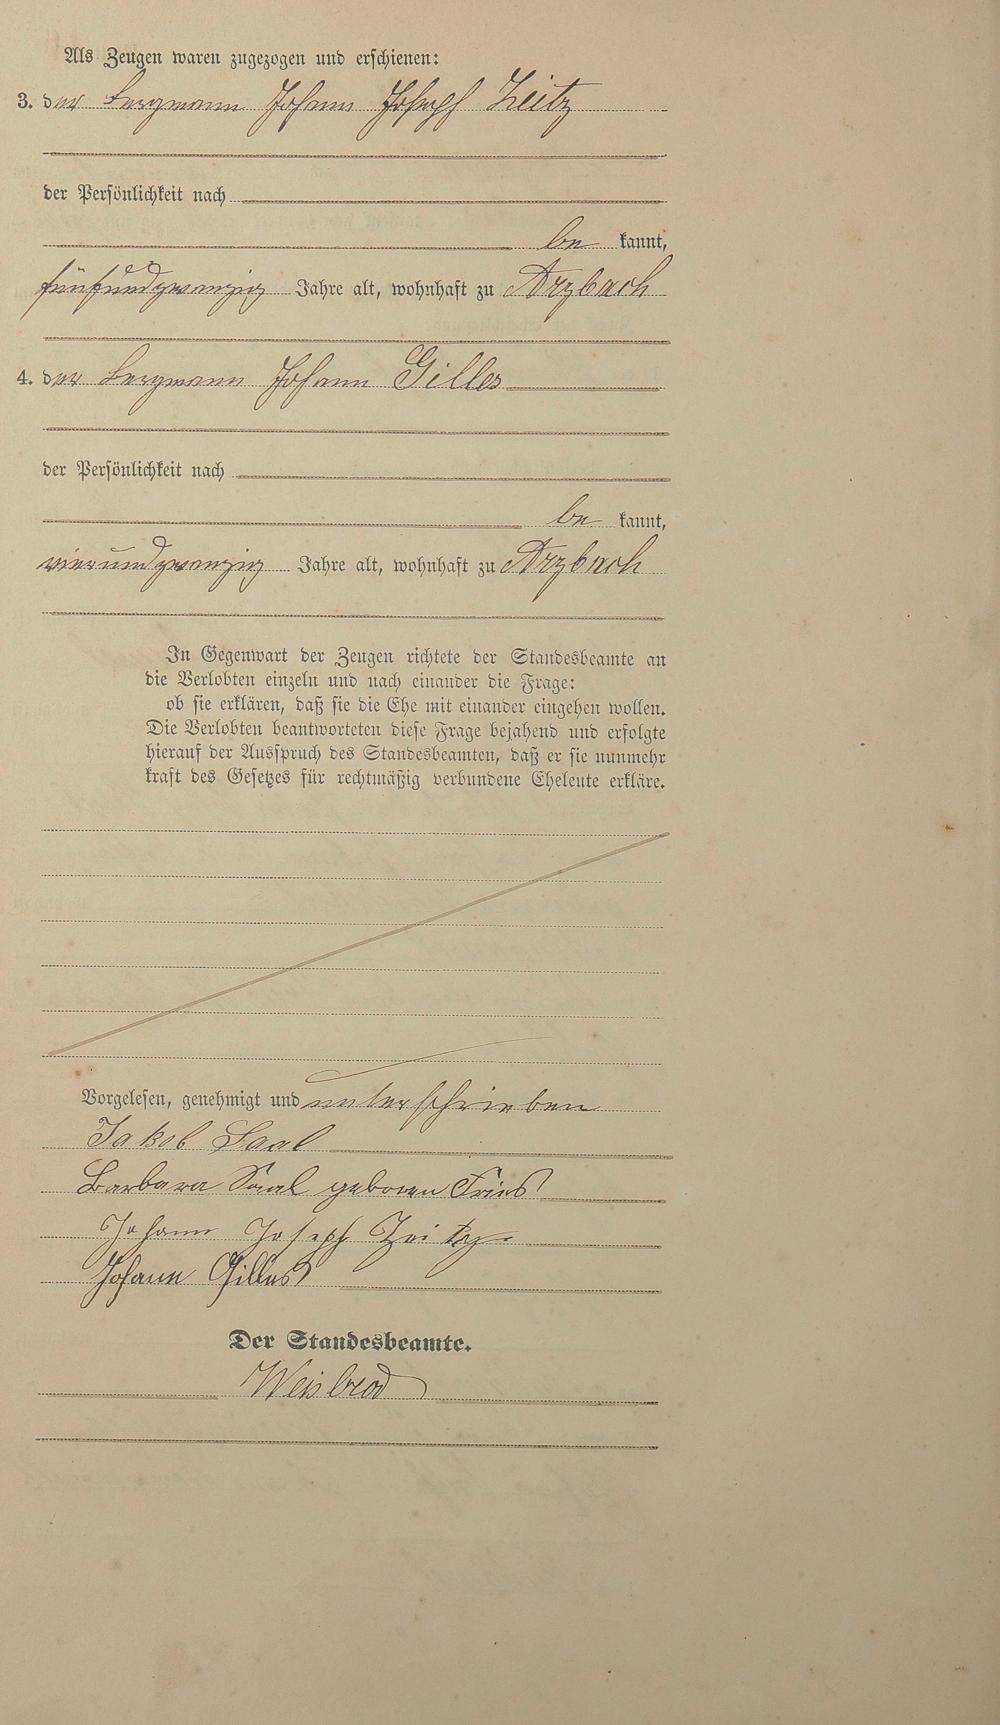 Als Zeugen waren zugezogen und erschienen:
3. der Bergmann Johann Joseph Zeitz
der Persönlichkeit nach
be kannt,
fünfundzwanzig Jahre alt, wohnhaft zu Arzbach
4. der Bergmann Johann Gilles
der Persönlichkeit nach
be kannt,
vierundzwanzig Jahre alt, wohnhaft zu Arzbach
In Gegenwart der Zeugen richtete der Standesbeamte an
die Verlobten einzeln und nach einander die Frage:
ob sie erklären, daß sie die Ehe mit einander eingehen wollen.
Die Verlobten beantworteten diese Frage bejahend und erfolgte
hierauf der Ausspruch des Standesbeamten, daß er sie nunmehr
kraft des Gesetzes für rechtmäßig verbundene Eheleute erkläre.
Vorgelesen, genehmigt und unterschrieben
Jakob Saal
Barbara Saal geboren Fries
Johann Joseph Zeitz
Johann Gilles
Der Standesbeamte.
Weisbrod